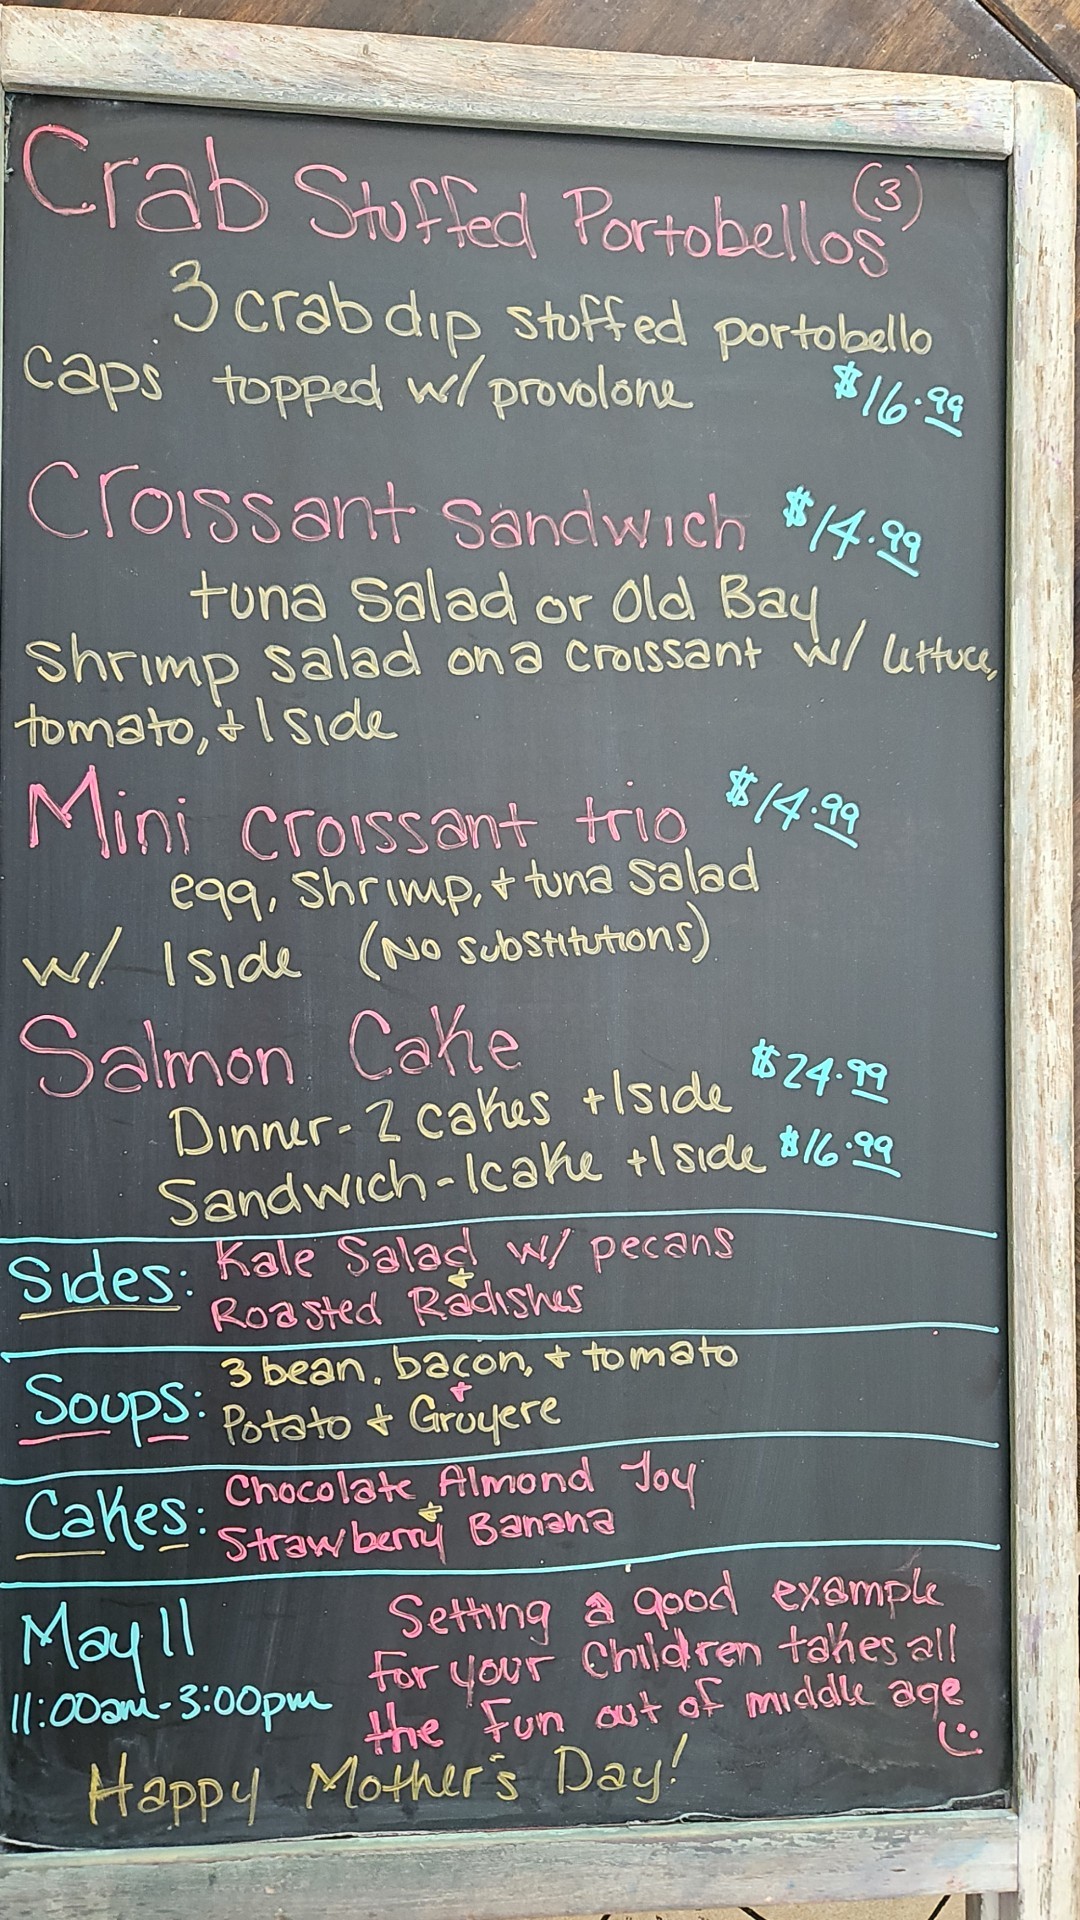 Crab Stuffed Portobellos (3)
3 crab dip stuffed portobello
caps topped w/ provolone $16.99
Croissant Sandwich $14.99
tuna Salad or Old Bay
Shrimp salad on a croissant w/ lettuce,
tomato, + 1 side
Mini croissant trio $14.99
egg, Shrimp, + tuna salad
w/ 1 side (No substitutions)
Salmon Cake
Dinner - 2 cakes + 1 side $24.99
Sandwich - 1 cake + 1 side $16.99
Sides: Kale Salad w/ pecans
+
Roasted Radishes
Soups: 3 bean, bacon, + tomato
+
Potato + Gruyere
Cakes: Chocolate Almond Joy
+
Strawberry Banana
May 11
11:00am-3:00pm
Setting a good example
for your Children takes all
the fun out of middle age
Happy Mother's Day!